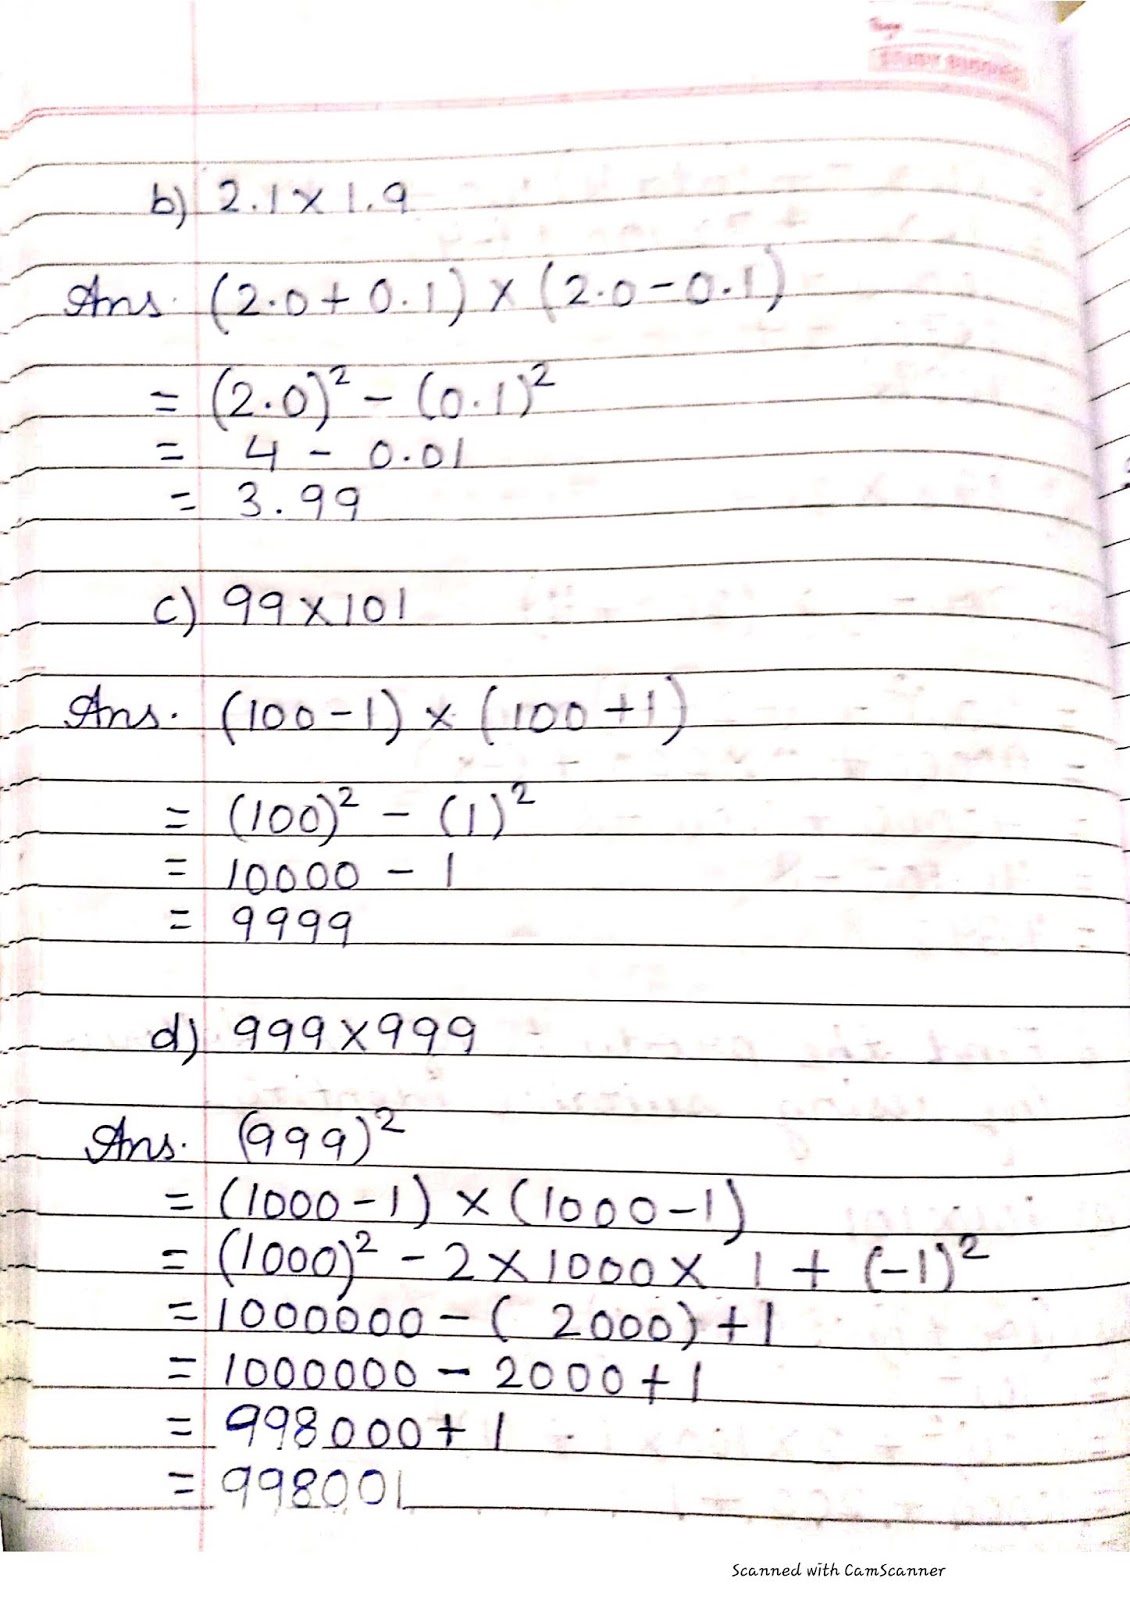 b) 2.1 × 1.9
Ans. (2.0 + 0.1) × (2.0 - 0.1)
= (2.0)² - (0.1)²
= 4 - 0.01
= 3.99
c) 99 × 101
Ans. (100 - 1) × (100 + 1)
= (100)² - (1)²
= 10000 - 1
= 9999
d) 999 × 999
Ans. (999)²
= (1000 - 1) × (1000 - 1)
= (1000)² - 2 × 1000 × 1 + (-1)²
= 1000000 - ( 2000) + 1
= 1000000 - 2000 + 1
= 998000 + 1
= 998001
Scanned with CamScanner